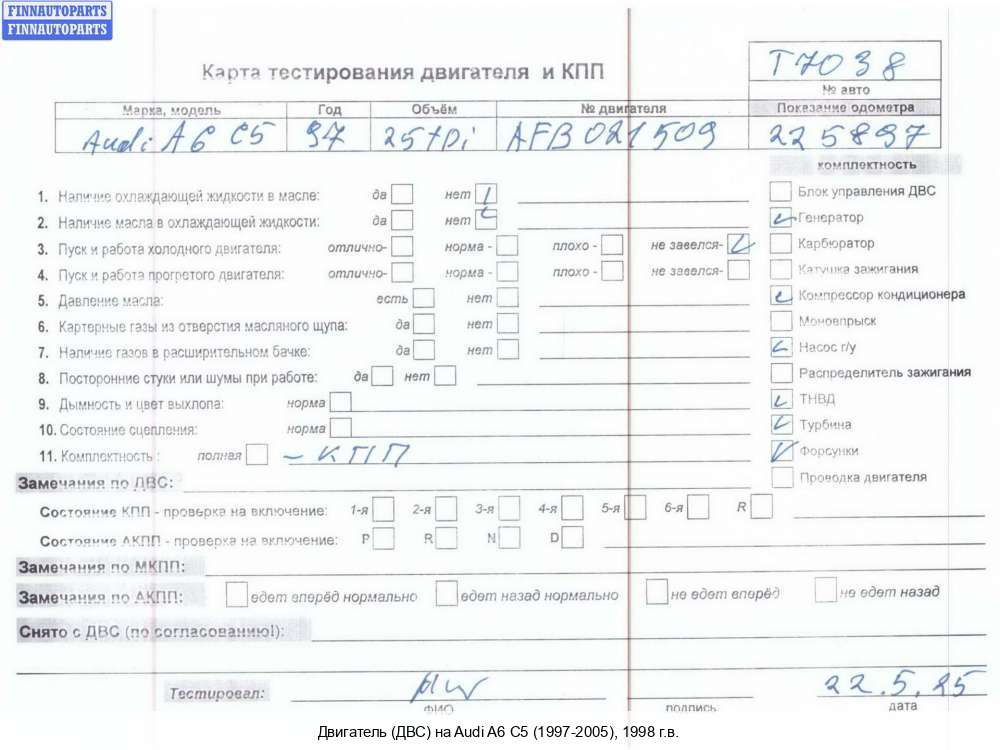 FINNAUTOPARTS
FINNAUTOPARTS
Карта тестирования двигателя и КПП
T7038
№ авто
Марка, модель Год Объём № двигателя Показание одометра
Audi A6 C5 97 25TDi AFB021509 225897
комплектность
1. Наличие охлаждающей жидкости в масле: да нет
Блок управления ДВС
2. Наличие масла в охлаждающей жидкости: да нет
Генератор
3. Пуск и работа холодного двигателя: отлично- норма - плохо - не завелся-
Карбюратор
4. Пуск и работа прогретого двигателя: отлично- норма - плохо - не завелся-
Катушка зажигания
5. Давление масла: есть нет
Компрессор кондиционера
6. Картерные газы из отверстия масляного щупа: да нет
Моновпрыск
7. Наличие газов в расширительном бачке: да нет
Насос г/у
8. Посторонние стуки или шумы при работе: да нет
Распределитель зажигания
9. Дымность и цвет выхлопа: норма
ТНВД
10. Состояние сцепления: норма
Турбина
11. Комплектность: полная - КПП
Форсунки
Замечания по ДВС:
Проводка двигателя
Состояние КПП - проверка на включение: 1-я 2-я 3-я 4-я 5-я 6-я R
Состояние АКПП - проверка на включение: P R N D
Замечания по МКПП:
Замечания по АКПП: едет вперёд нормально едет назад нормально не едет вперёд не едет назад
Снято с ДВС (по согласованию!):
Тестировал: 22.5.25
ФИО подпись дата
Двигатель (ДВС) на Audi A6 C5 (1997-2005), 1998 г.в.